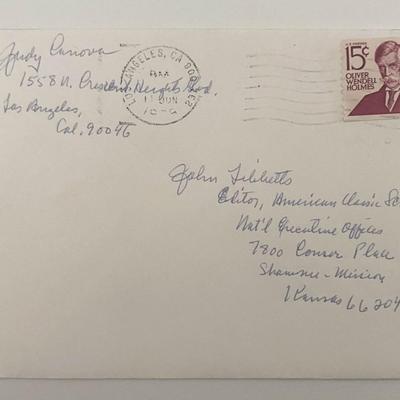 Judy Canova
1558 N. Crescent Heights Blvd.
Los Angeles,
Cal. 90046
LOS ANGELES, CA
11 JUN
15¢
OLIVER
WENDELL
HOLMES
John Tibbetts
Editor, American Classic Sc
Nat'l Executive Offices
7800 Conser Place
Shawnee-Mission
Kansas 66204